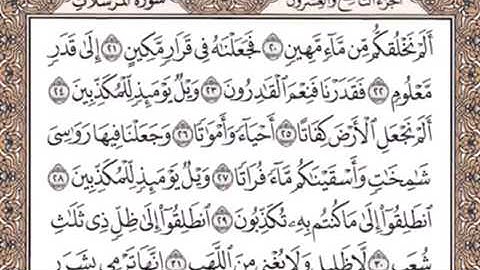 سورة المرسلات الجزء التاسع والعشرون
أَلَمْ نَخْلُقكُّم مِّن مَّآءٍ مَّهِينٍ ۝٢٠ فَجَعَلْنَـٰهُ فِى قَرَارٍ مَّكِينٍ ۝٢١ إِلَىٰ قَدَرٍ
مَّعْلُومٍ ۝٢٢ فَقَدَرْنَا فَنِعْمَ ٱلْقَـٰدِرُونَ ۝٢٣ وَيْلٌ يَوْمَئِذٍ لِّلْمُكَذِّبِينَ ۝٢٤
أَلَمْ نَجْعَلِ ٱلْأَرْضَ كِفَاتًا ۝٢٥ أَحْيَآءً وَأَمْوَٰتًا ۝٢٦ وَجَعَلْنَا فِيهَا رَوَٰسِىَ
شَـٰمِخَـٰتٍ وَأَسْقَيْنَـٰكُم مَّآءً فُرَاتًا ۝٢٧ وَيْلٌ يَوْمَئِذٍ لِّلْمُكَذِّبِينَ ۝٢٨
ٱنطَلِقُوٓا۟ إِلَىٰ مَا كُنتُم بِهِۦ تُكَذِّبُونَ ۝٢٩ ٱنطَلِقُوٓا۟ إِلَىٰ ظِلٍّ ذِى ثَلَـٰثِ
شُعَبٍ ۝٣٠ لَّا ظَلِيلٍ وَلَا يُغْنِى مِنَ ٱللَّهَبِ ۝٣١ إِنَّهَا تَرْمِى بِشَرَرٍ